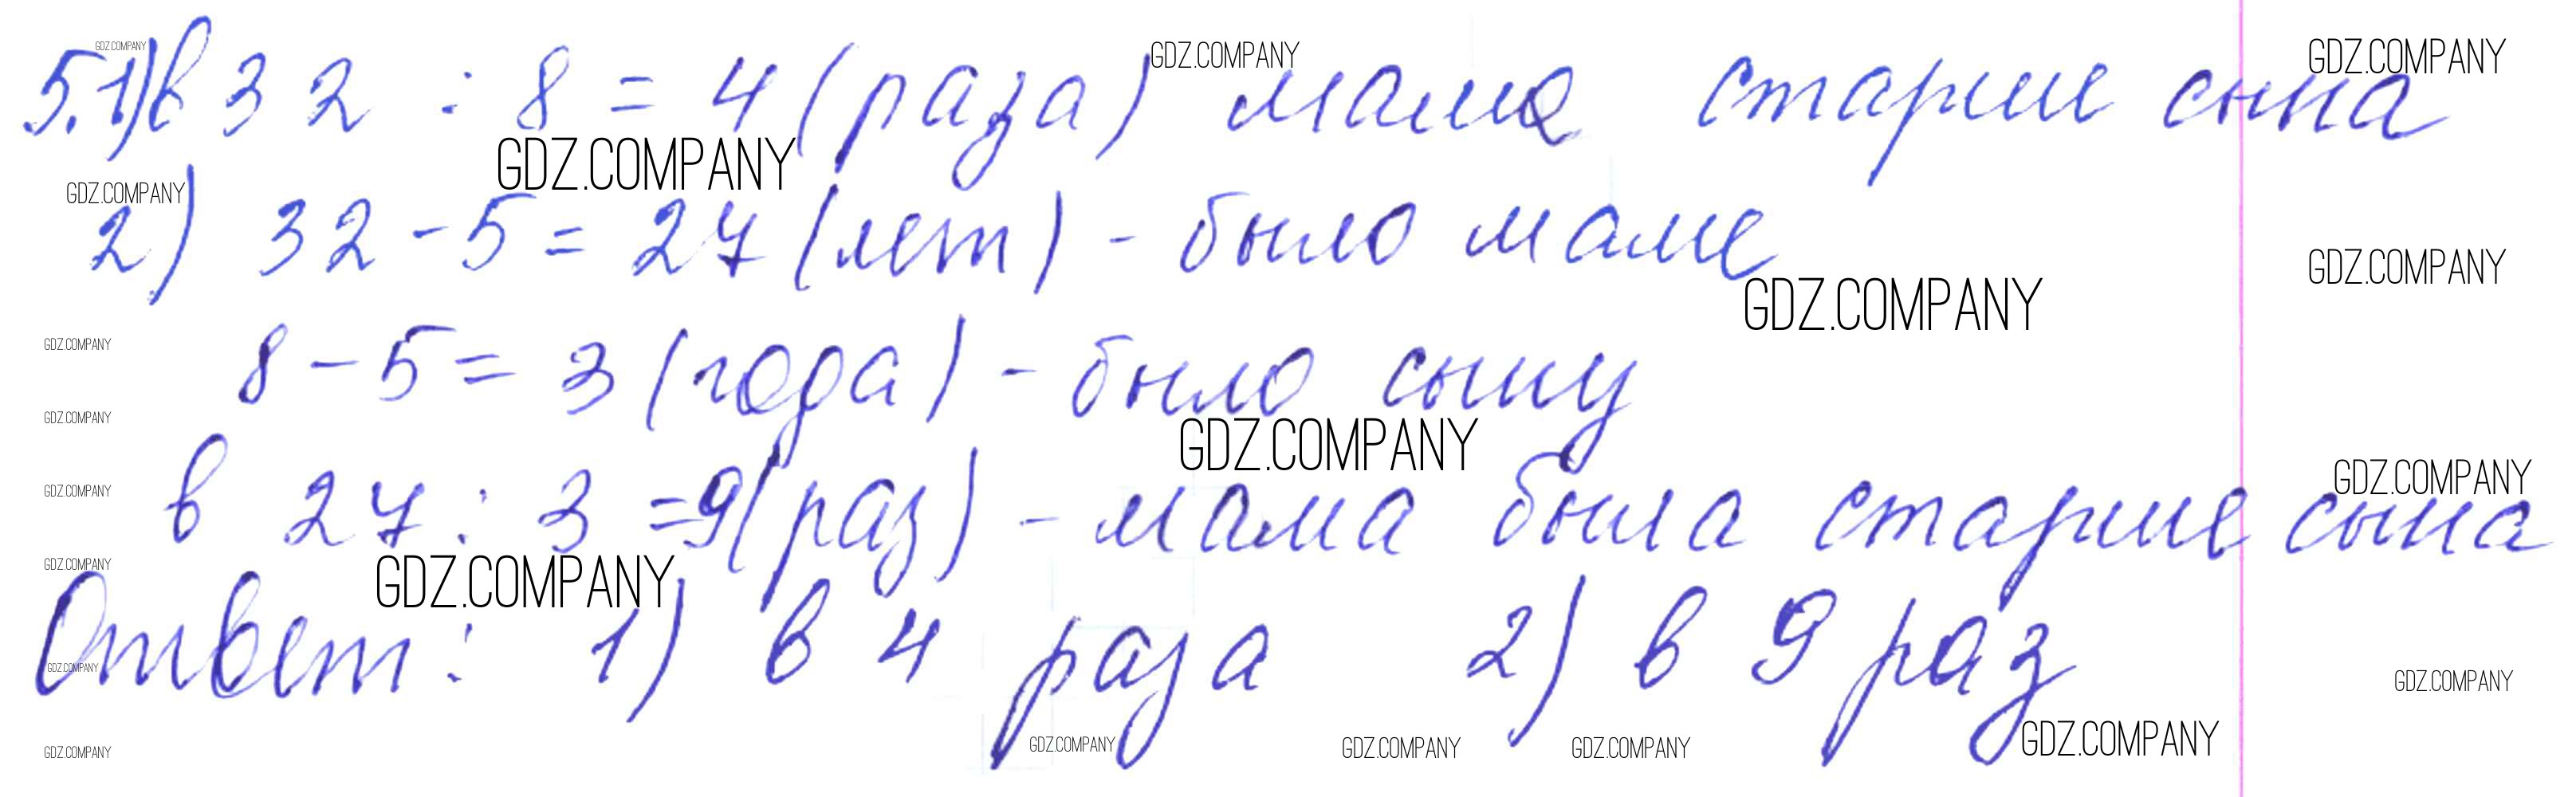 GDZ.COMPANY GDZ.COMPANY GDZ.COMPANY
5.1) в 32 : 8 = 4 (раза) мама старше сына
GDZ.COMPANY GDZ.COMPANY
2) 32 - 5 = 27 (лет) - было маме
GDZ.COMPANY GDZ.COMPANY
GDZ.COMPANY
8 - 5 = 3 (года) - было сыну
GDZ.COMPANY GDZ.COMPANY
GDZ.COMPANY GDZ.COMPANY
в 27 : 3 = 9 (раз) - мама была старше сына
GDZ.COMPANY GDZ.COMPANY
Ответ: 1) в 4 раза 2) в 9 раз
GDZ.COMPANY GDZ.COMPANY
GDZ.COMPANY GDZ.COMPANY GDZ.COMPANY GDZ.COMPANY GDZ.COMPANY